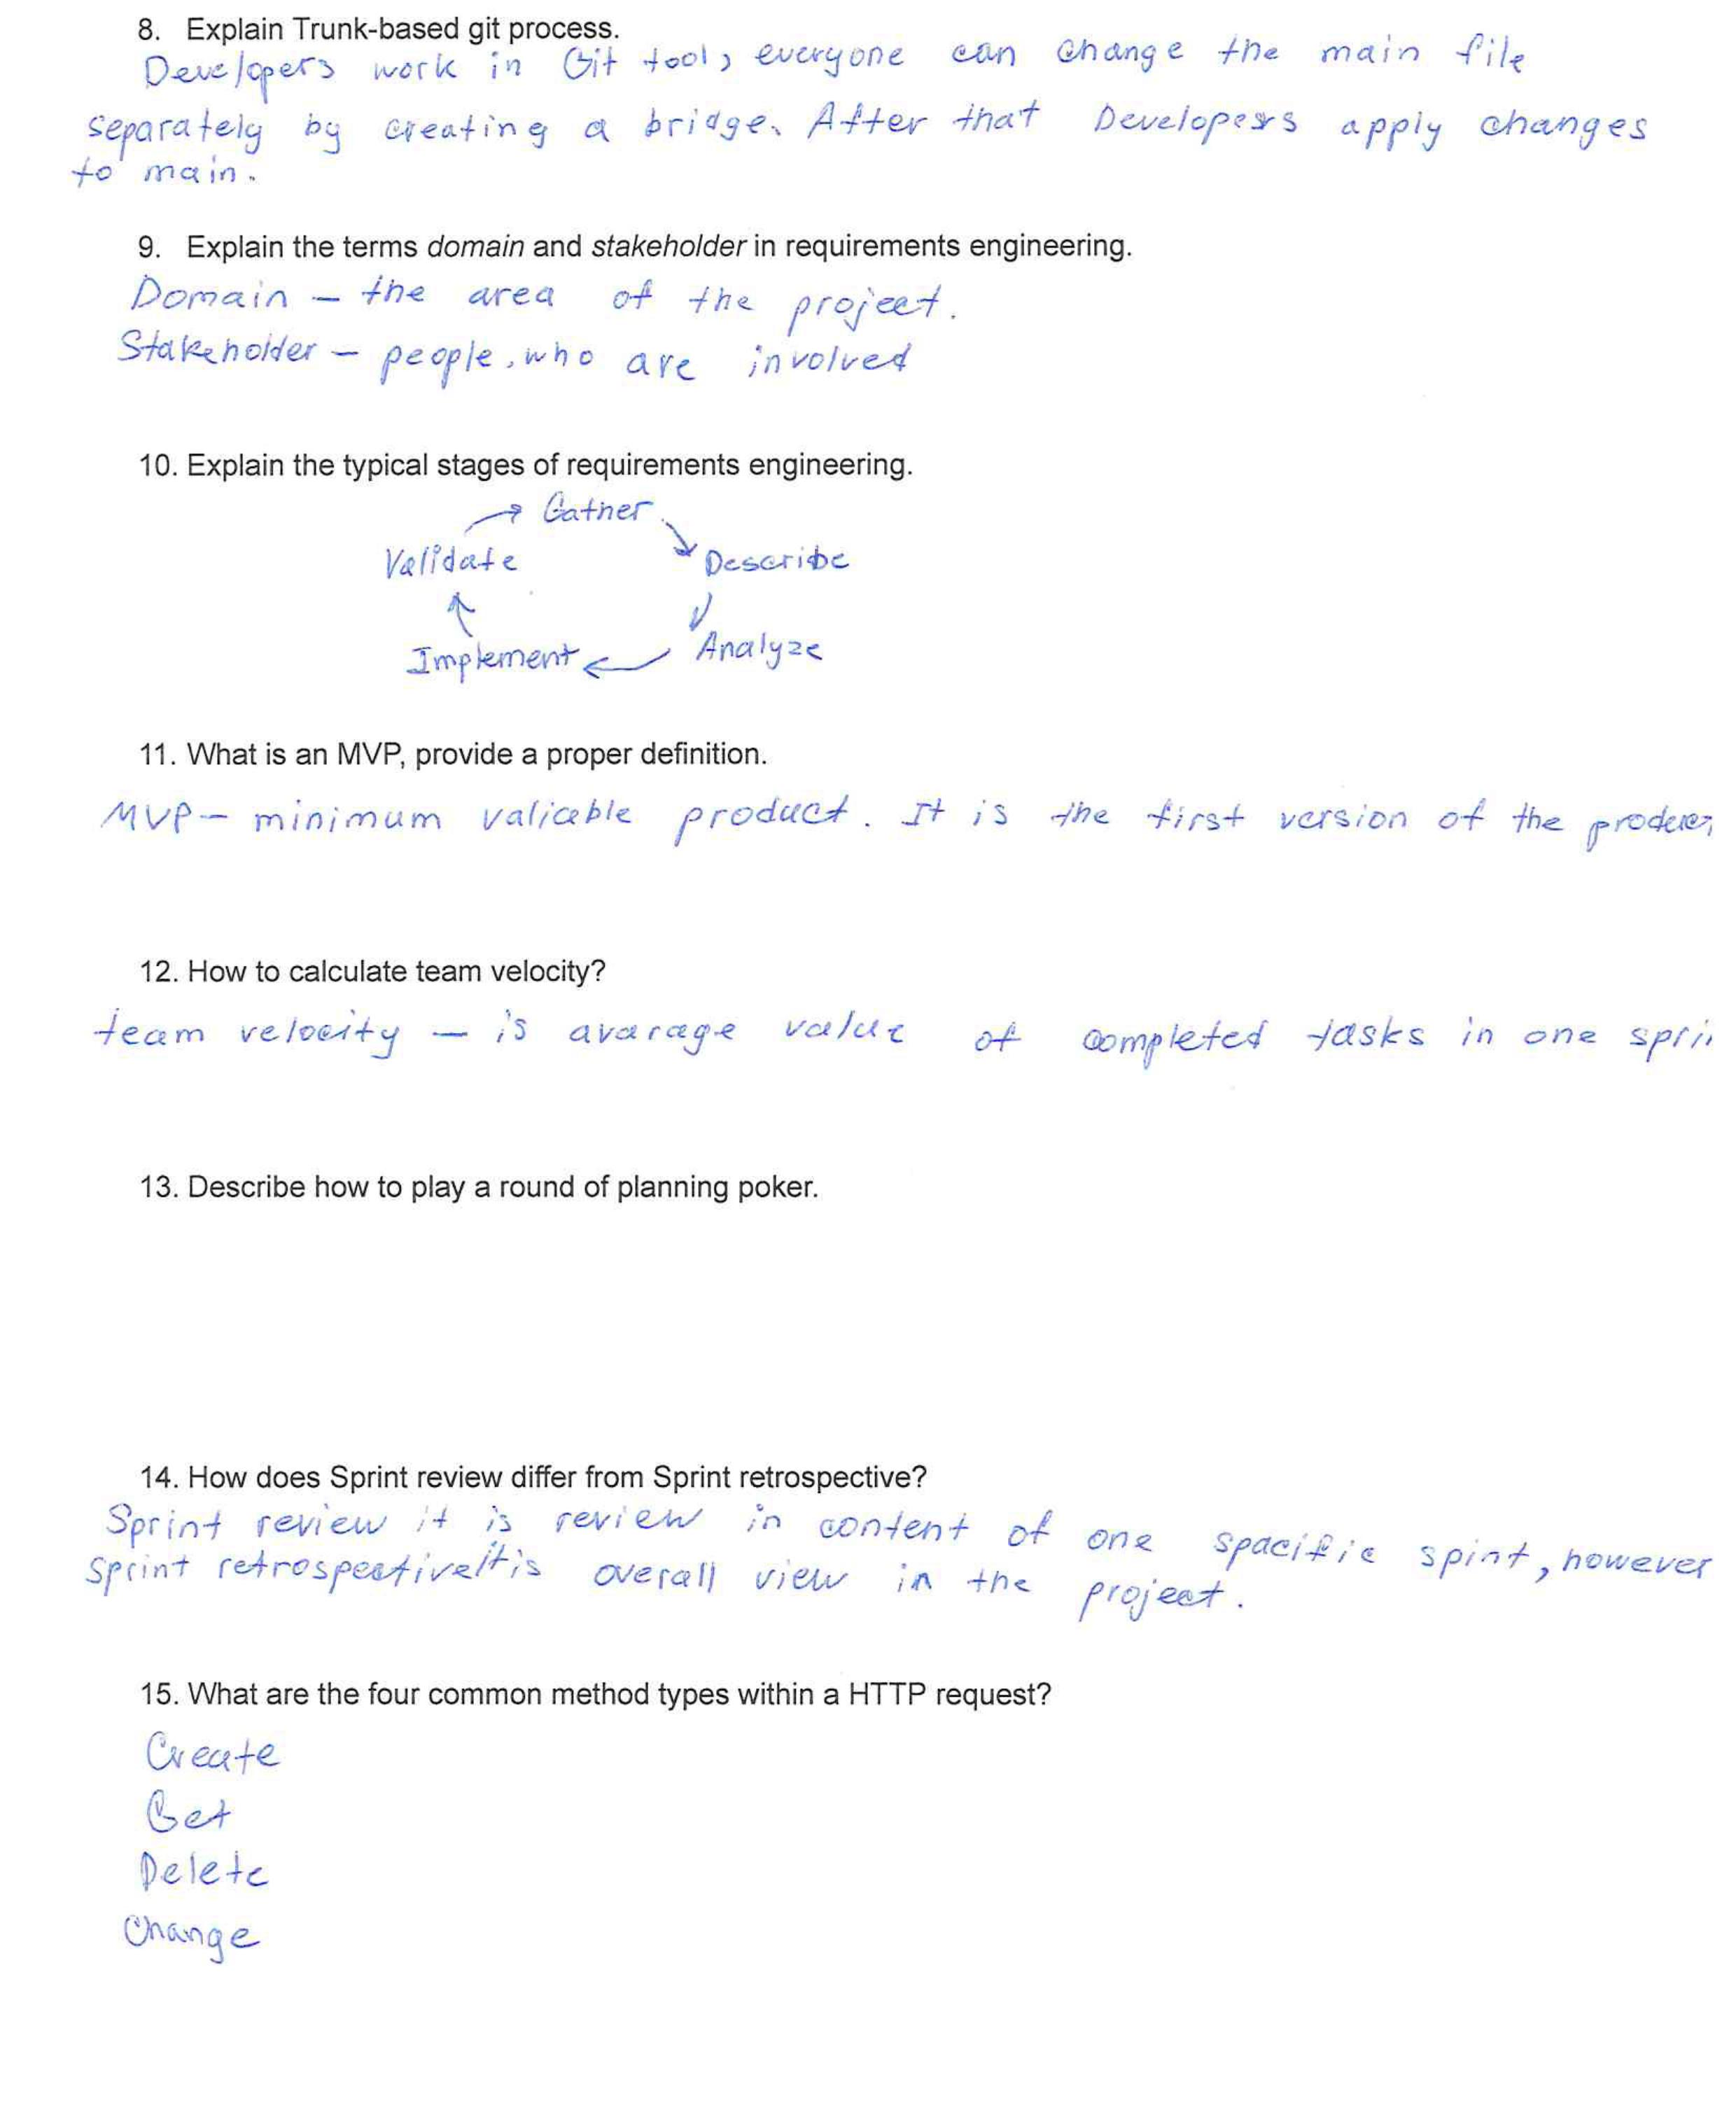 8. Explain Trunk-based git process.
Developers work in Git tool, everyone can change the main file
separately by creating a bridge. After that Developers apply changes
to main.
9. Explain the terms domain and stakeholder in requirements engineering.
Domain – the area of the project.
Stakeholder – people, who are involved
10. Explain the typical stages of requirements engineering.
Gather
Validate Describe
Implement Analyze
11. What is an MVP, provide a proper definition.
MVP – minimum valicable product. It is the first version of the
12. How to calculate team velocity?
team velocity – is avarage value of completed tasks in one spri
13. Describe how to play a round of planning poker.
14. How does Sprint review differ from Sprint retrospective?
Sprint review it is review in content of one spacific spint, however
sprint retrospective it is overall view in the project.
15. What are the four common method types within a HTTP request?
Create
Get
Delete
Change